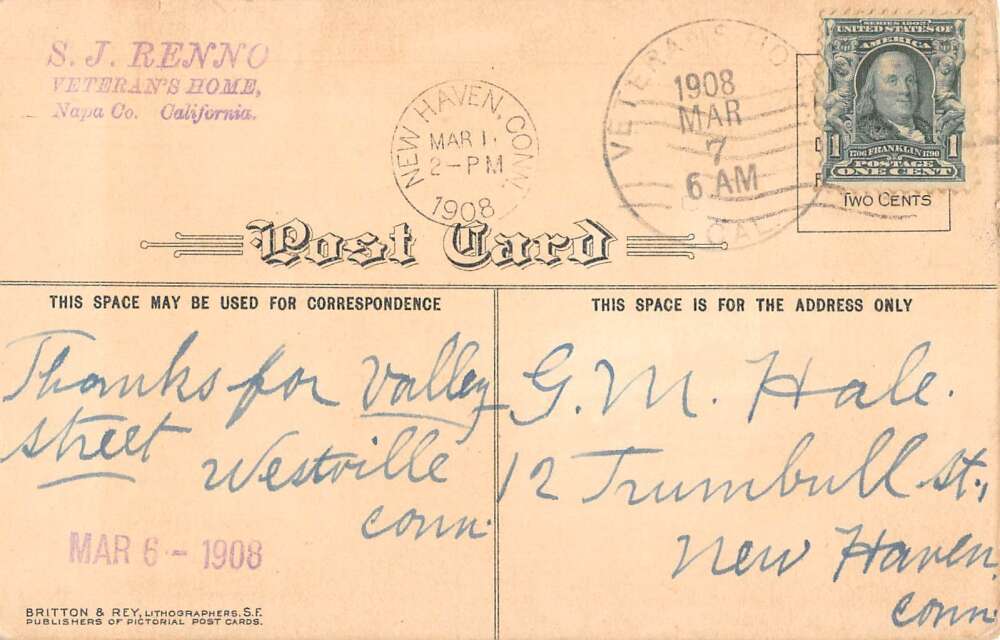 S. J. RENNO
VETERAN'S HOME,
Napa Co. California.
NEW HAVEN, CONN.
MAR 1
2-PM
1908
VETERANS HO
1908
MAR
7
6 AM
CAL.
SERIES 1902
UNITED STATES OF
AMERICA
1706 FRANKLIN 1790
1 1
POSTAGE
ONE CENT
TWO CENTS
Post Card
THIS SPACE MAY BE USED FOR CORRESPONDENCE
Thanks for Valley
street Westville
Conn.
MAR 6 - 1908
BRITTON & REY, LITHOGRAPHERS, S.F.
PUBLISHERS OF PICTORIAL POST CARDS.
THIS SPACE IS FOR THE ADDRESS ONLY
G. M. Hale.
12 Trumbull St.,
New Haven,
Conn